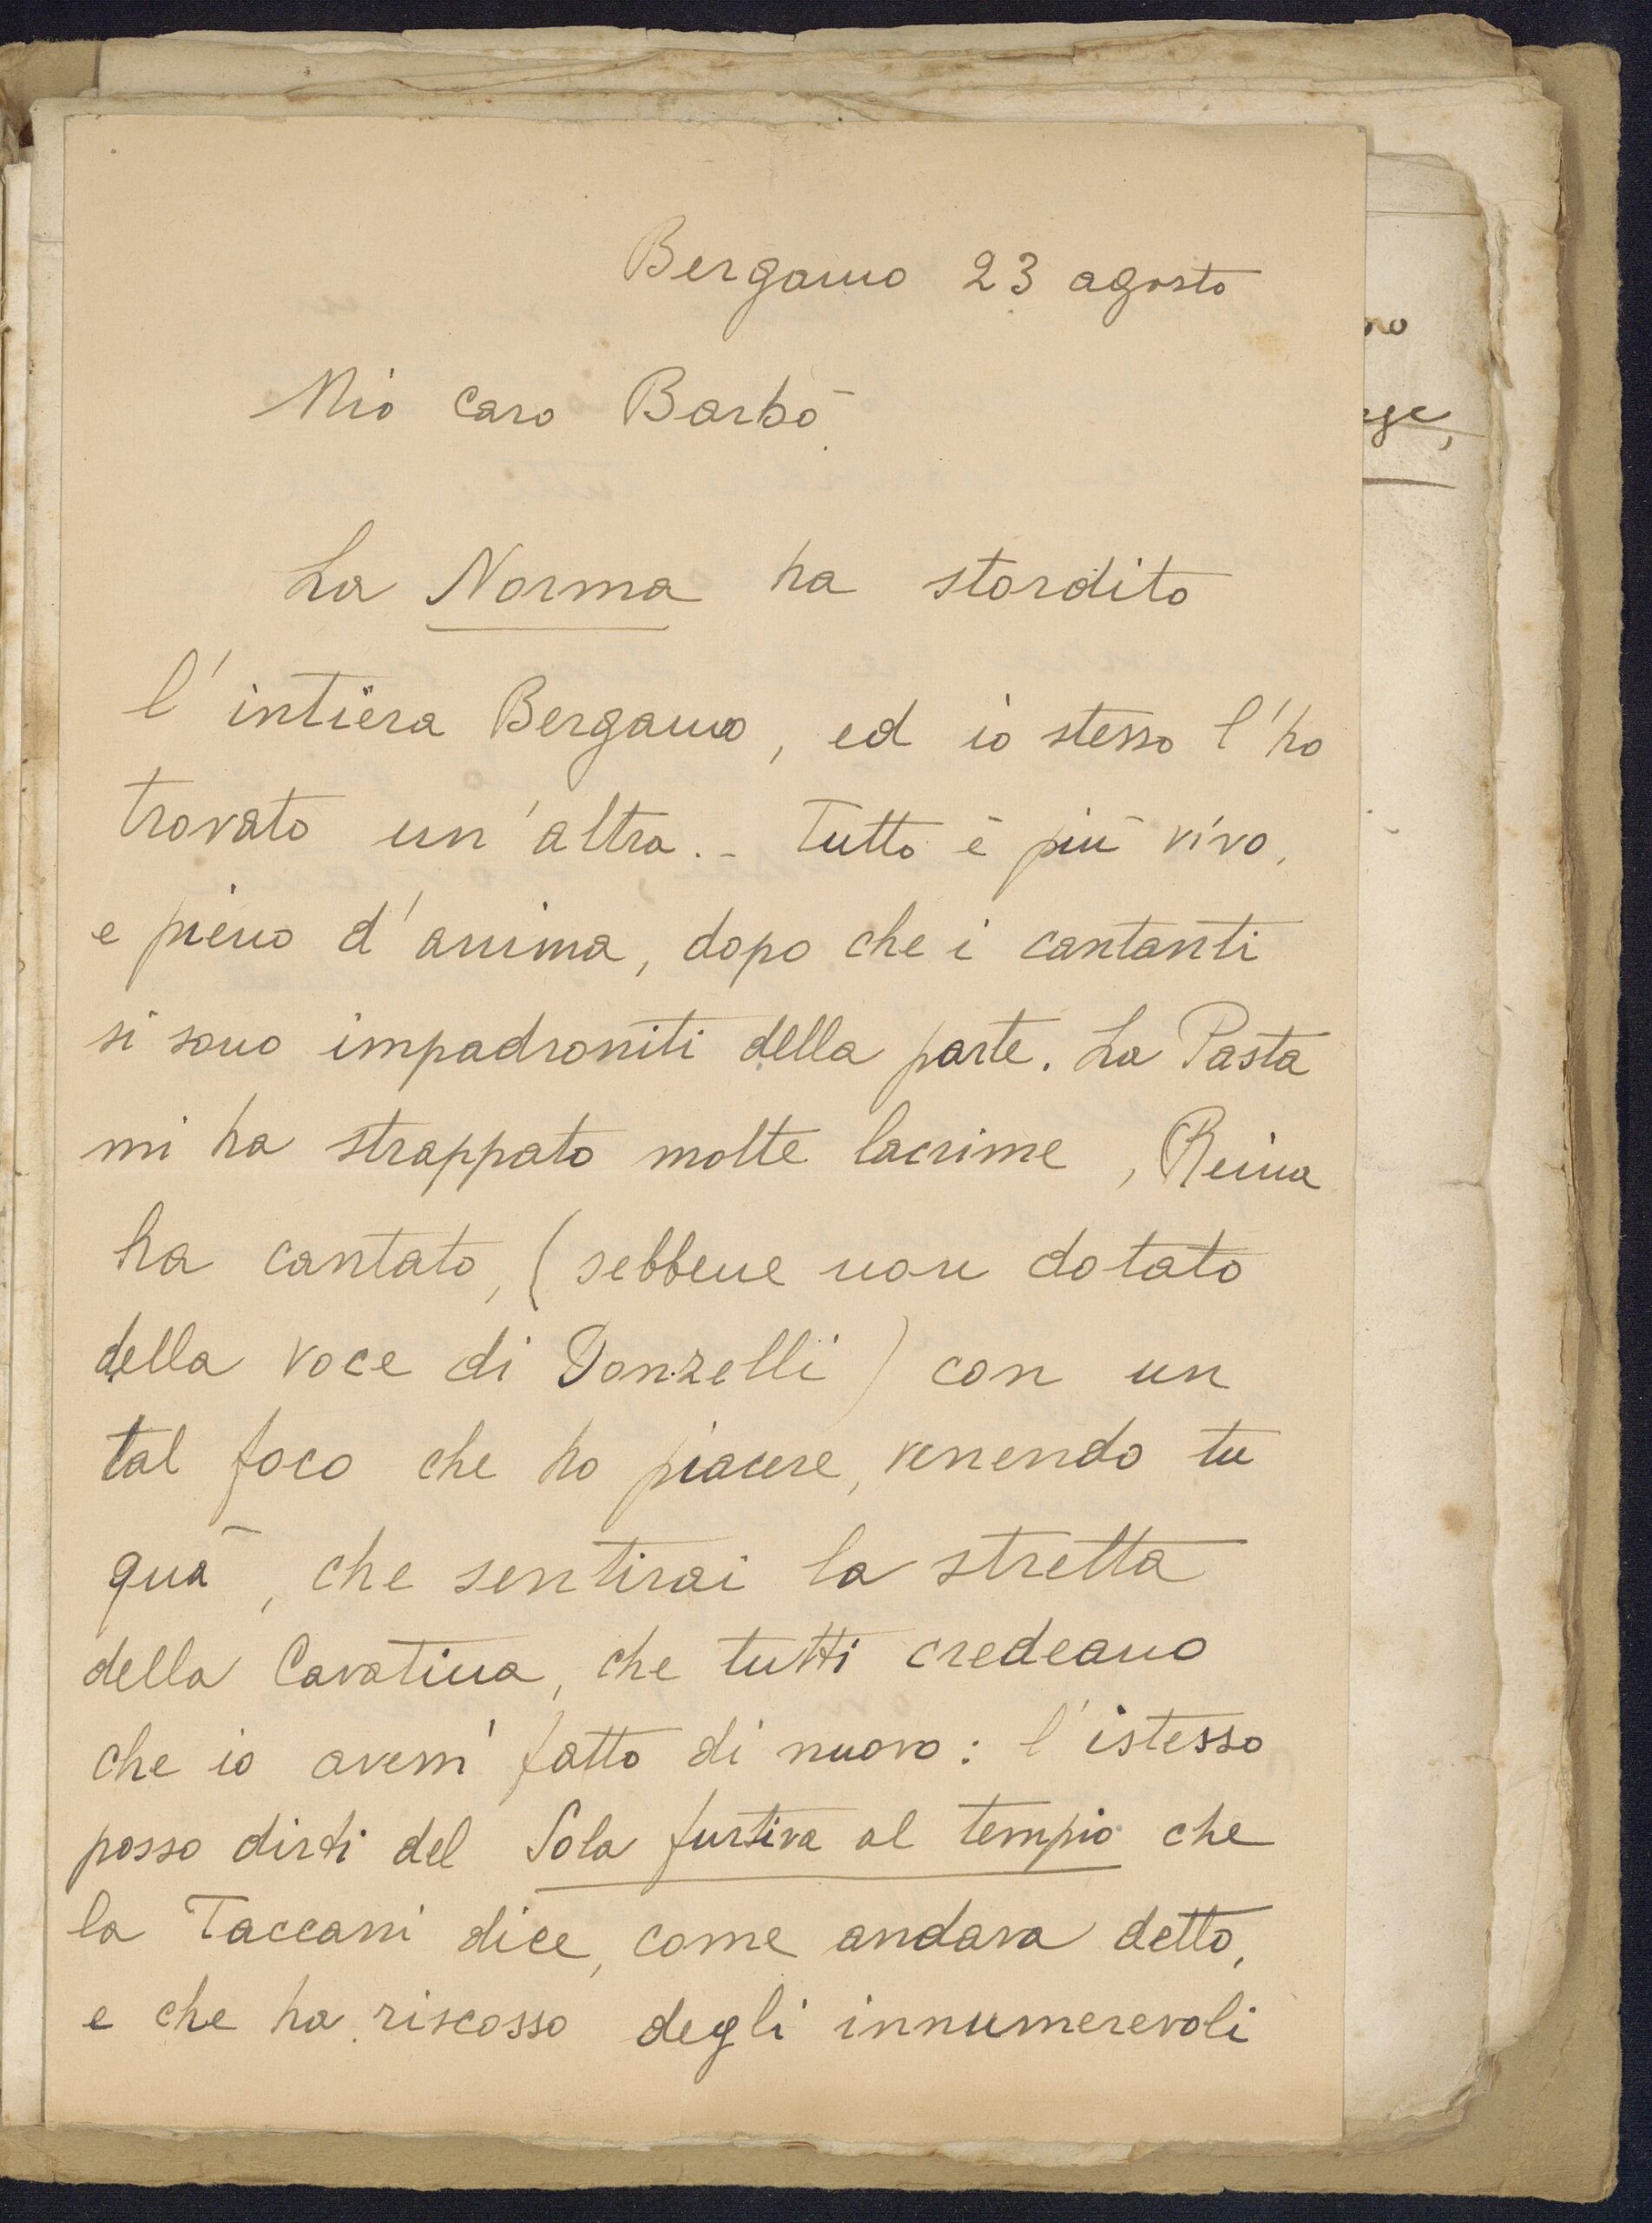 Bergamo 23 agosto
Mio caro Barbò
La Norma ha stordito
l'intiera Bergamo, ed io stesso l'ho
trovato un'altra. - Tutto è più vivo,
e pieno d'anima, dopo che i cantanti
si sono impadroniti della parte. La Pasta
mi ha strappato molte lacrime, Reina
ha cantato, (sebbene non dotato
della voce di Donzelli) con un
tal foco che ho piacere, venendo tu
quà, che sentirai la stretta
della Cavatina, che tutti credeano
che io avessi fatto di nuovo: l'istesso
posso dirti del Sola furtiva al tempio che
la Taccani dice, come andava detto,
e che ha riscosso degli innumerevoli